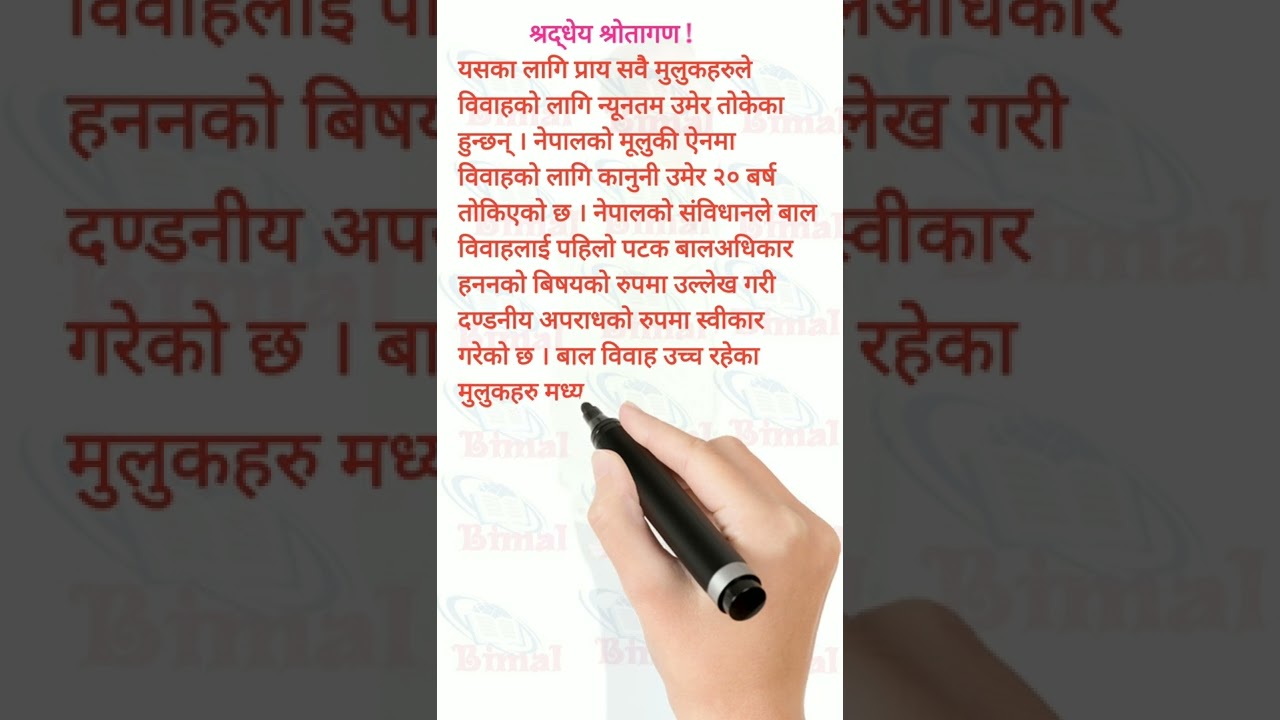 श्रद्धेय श्रोतागण !
यसका लागि प्राय सवै मुलुकहरुले
विवाहको लागि न्यूनतम उमेर तोकेका
हुन्छन् । नेपालको मूलुकी ऐनमा
विवाहको लागि कानुनी उमेर २० बर्ष
तोकिएको छ । नेपालको संविधानले बाल
विवाहलाई पहिलो पटक बालअधिकार
हननको बिषयको रुपमा उल्लेख गरी
दण्डनीय अपराधको रुपमा स्वीकार
गरेको छ । बाल विवाह उच्च रहेका
मुलुकहरु मध्य
Bimal